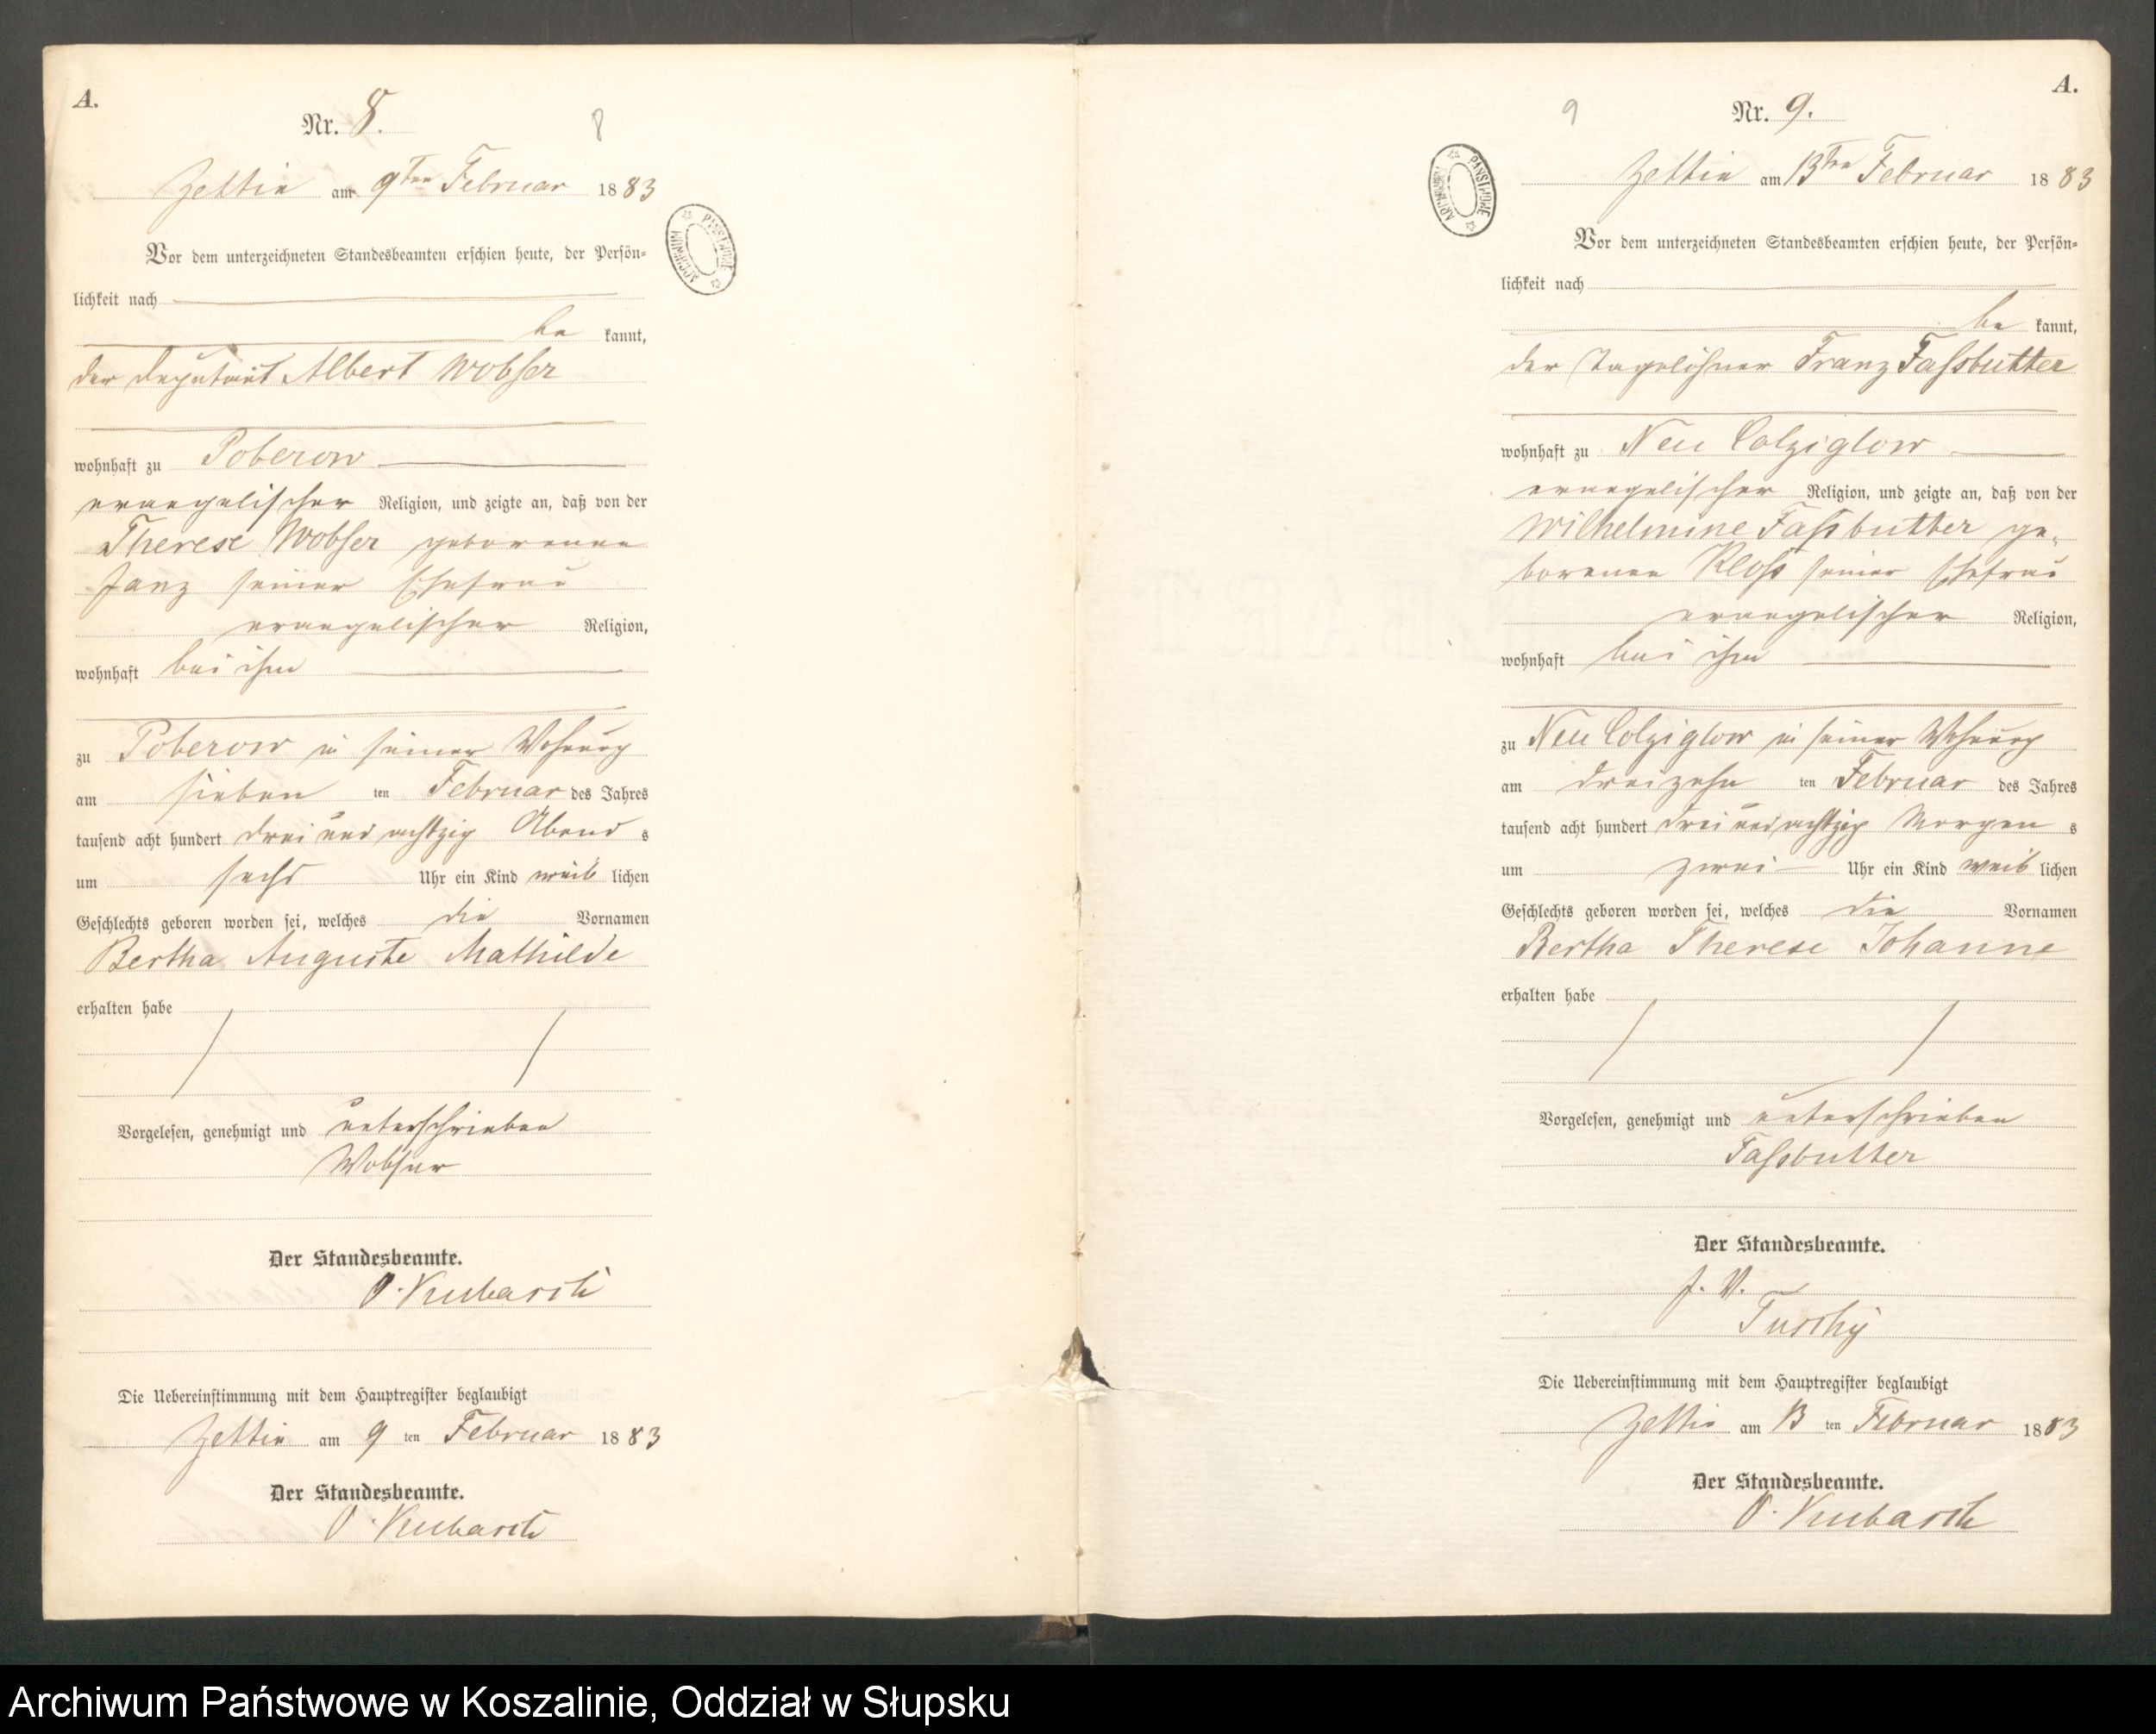 A.
Nr. 8.
8
Zettin am 9ten Februar 1883
ARCHIWUM PAŃSTWOWE
Vor dem unterzeichneten Standesbeamten erschien heute, der Persön-
lichkeit nach
be kannt,
der Deputant Albert Wobser
wohnhaft zu Poberow
evangelischer Religion, und zeigte an, daß von der
Therese Wobser geborenen
Janz seiner Ehefrau
evangelischer Religion,
wohnhaft bei ihm
zu Poberow in seiner Wohnung
am sieben ten Februar des Jahres
tausend acht hundert drei und achtzig Abend s
um sechs Uhr ein Kind weib lichen
Geschlechts geboren worden sei, welches die Vornamen
Bertha Auguste Mathilde
erhalten habe
Vorgelesen, genehmigt und unterschrieben
Wobser
Der Standesbeamte.
O.
Die Uebereinstimmung mit dem Hauptregister beglaubigt
Zettin am 9 ten Februar 1883
Der Standesbeamte.
O.
A.
9
Nr. 9.
Zettin am 13ten Februar 1883
ARCHIWUM PAŃSTWOWE
Vor dem unterzeichneten Standesbeamten erschien heute, der Persön-
lichkeit nach
be kannt,
der Tagelöhner Franz Fassbutter
wohnhaft zu Neu Colziglow
evangelischer Religion, und zeigte an, daß von der
Wilhelmine Fassbutter ge-
borenen Kloss seiner Ehefrau
evangelischer Religion,
wohnhaft bei ihm
zu Neu Colziglow in seiner Wohnung
am dreizehn ten Februar des Jahres
tausend acht hundert drei und achtzig Morgen s
um zwei Uhr ein Kind weib lichen
Geschlechts geboren worden sei, welches die Vornamen
Bertha Therese Johanne
erhalten habe
Vorgelesen, genehmigt und unterschrieben
Fassbutter
Der Standesbeamte.
J. V.
Die Uebereinstimmung mit dem Hauptregister beglaubigt
Zettin am 13 ten Februar 1883
Der Standesbeamte.
O.
Archiwum Państwowe w Koszalinie, Oddział w Słupsku